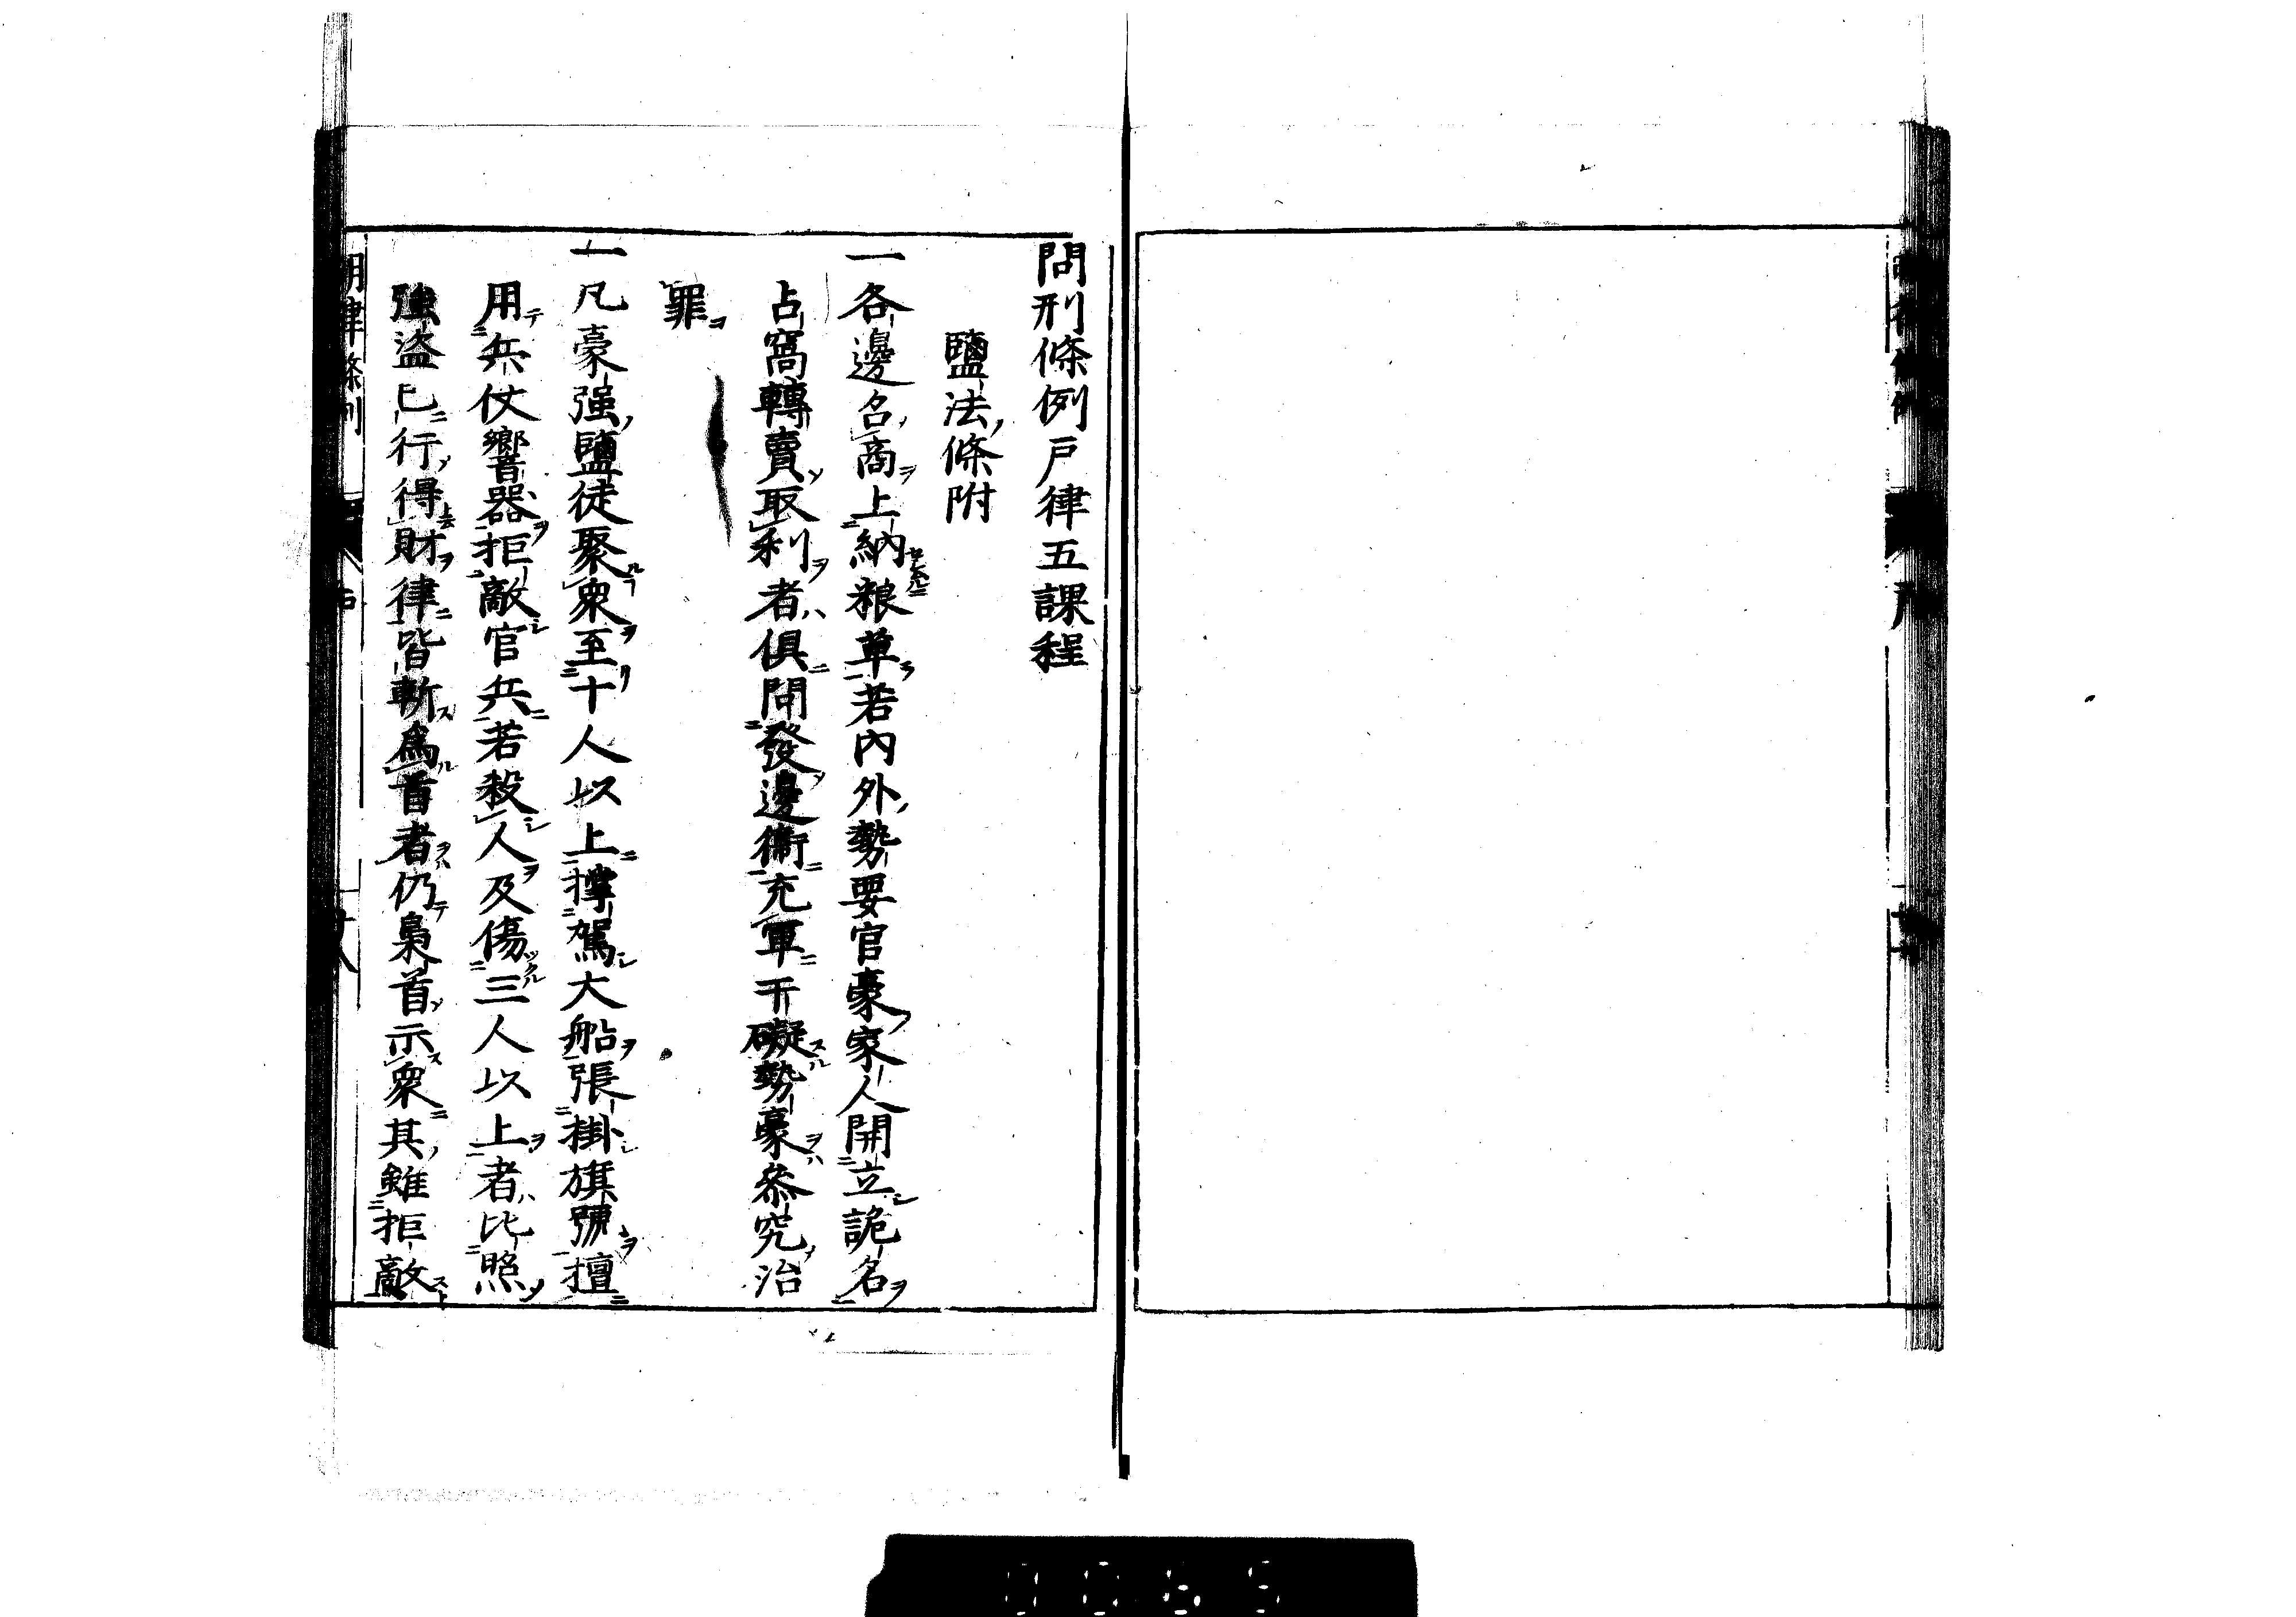 問刑條例戸律五課程
鹽法條附
一各邊召商上納粮草若内外勢要官豪家人開立詭名
占窩轉賣取利者俱問發邊衞充軍干礙勢豪叅究治
罪
一凡豪强鹽徒聚衆至十人以上撑駕大船張掛旗號擅
用兵仗響器拒敵官兵若殺人及傷三人以上者比照
強盗已行得財律皆斬爲首者仍梟首示衆其雖拒敵